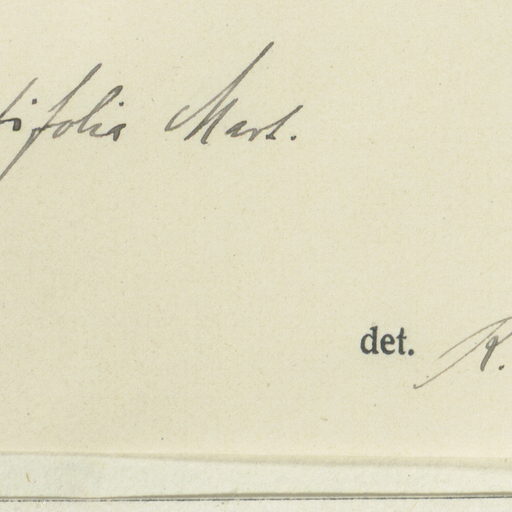 tifolia Mart.
det. K.